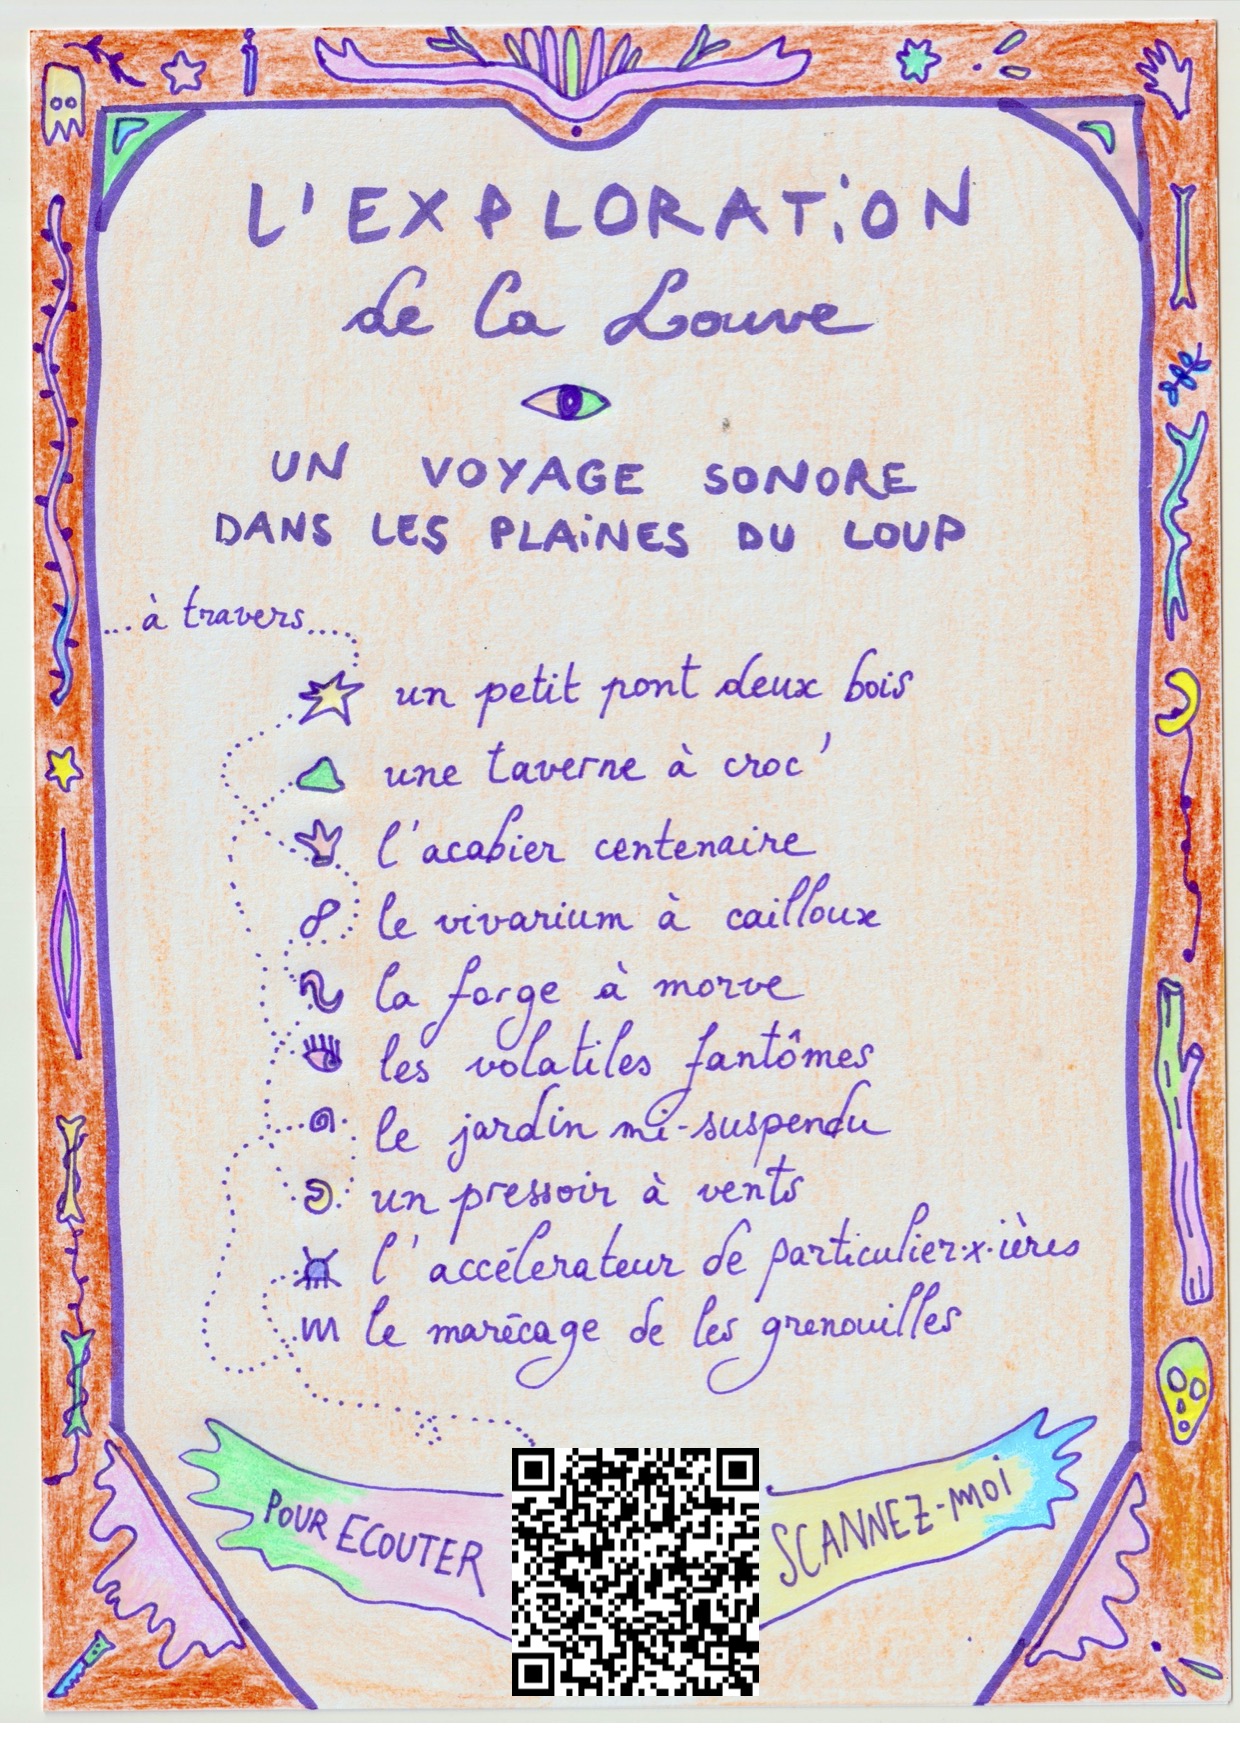 L'EXPLORATiON
de la Louve
UN VOYAGE SONORE
DANS LES PLAiNES DU LOUP
...à travers....
un petit pont deux bois
une taverne à croc'
l'acabier centenaire
le vivarium à cailloux
la forge à morve
les volatiles fantômes
le jardin mi-suspendu
un pressoir à vents
l'accélerateur de particulier·x·ières
le marécage de les grenouilles
POUR ECOUTER
SCANNEZ-MOi